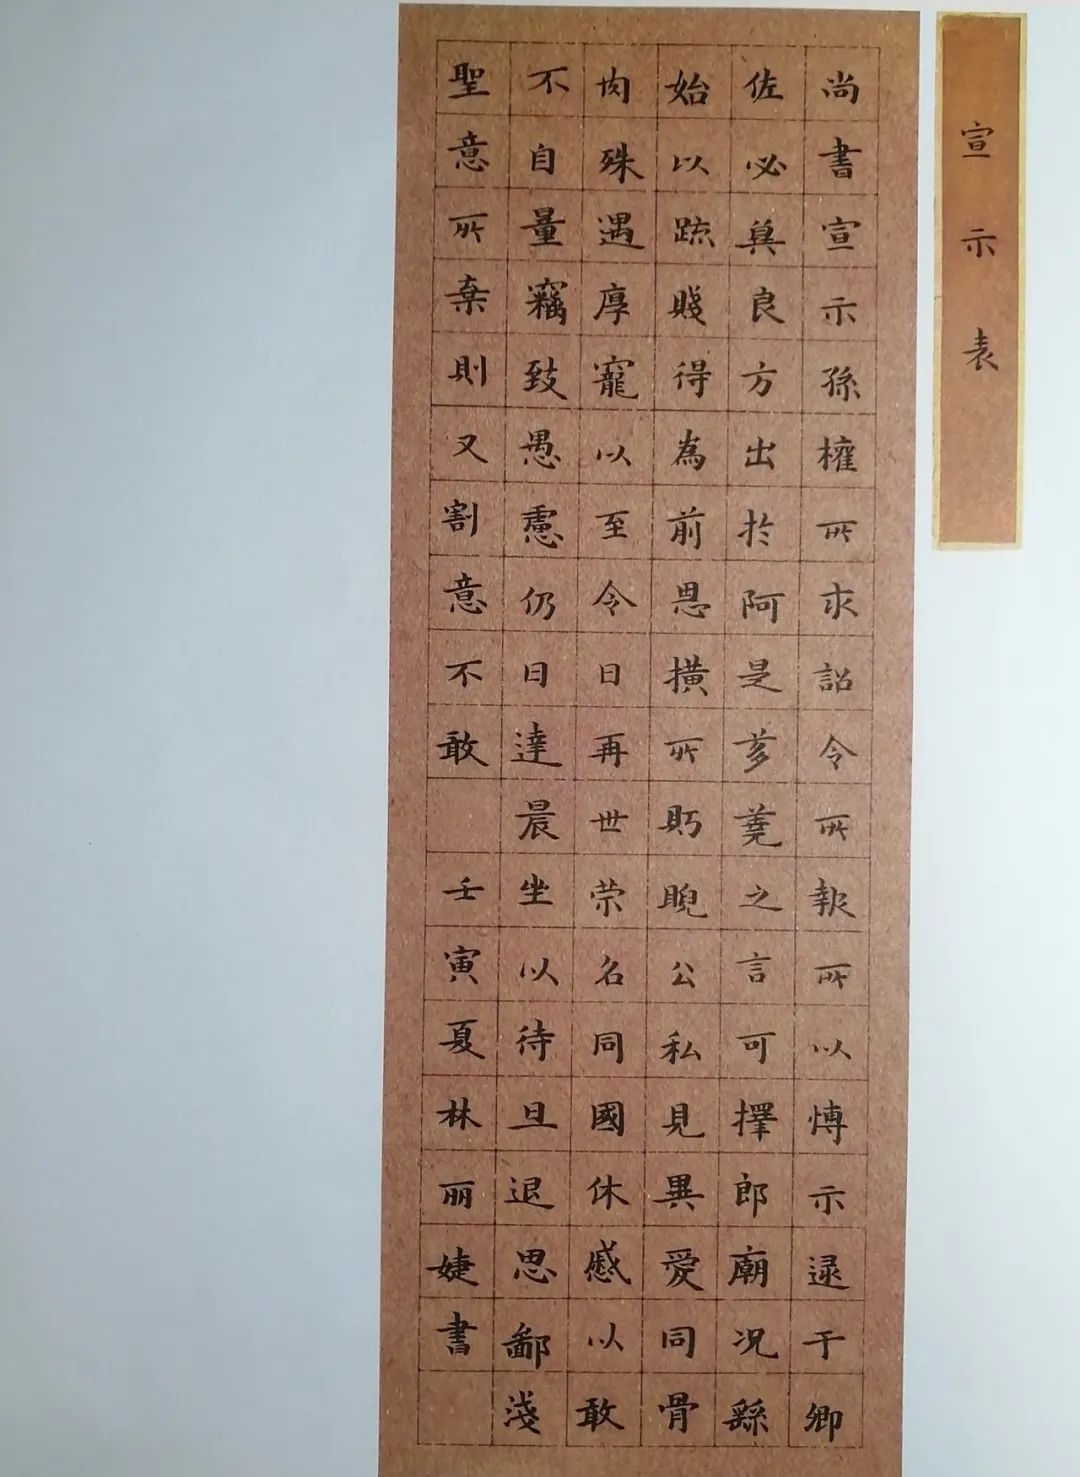 宣示表
尚書宣示孫權所求詔令所報所以博示逮于卿
佐必冀良方出於阿是芻蕘之言可擇郎廟况繇
始以疏賤得為前恩橫所盻睨公私見異愛同骨
肉殊遇厚寵以至令日再世荣名同國休慼以敢
不自量竊致愚慮仍日達晨坐以待旦退思鄙淺
聖意所棄則又割意不敢
壬寅夏林丽婕書